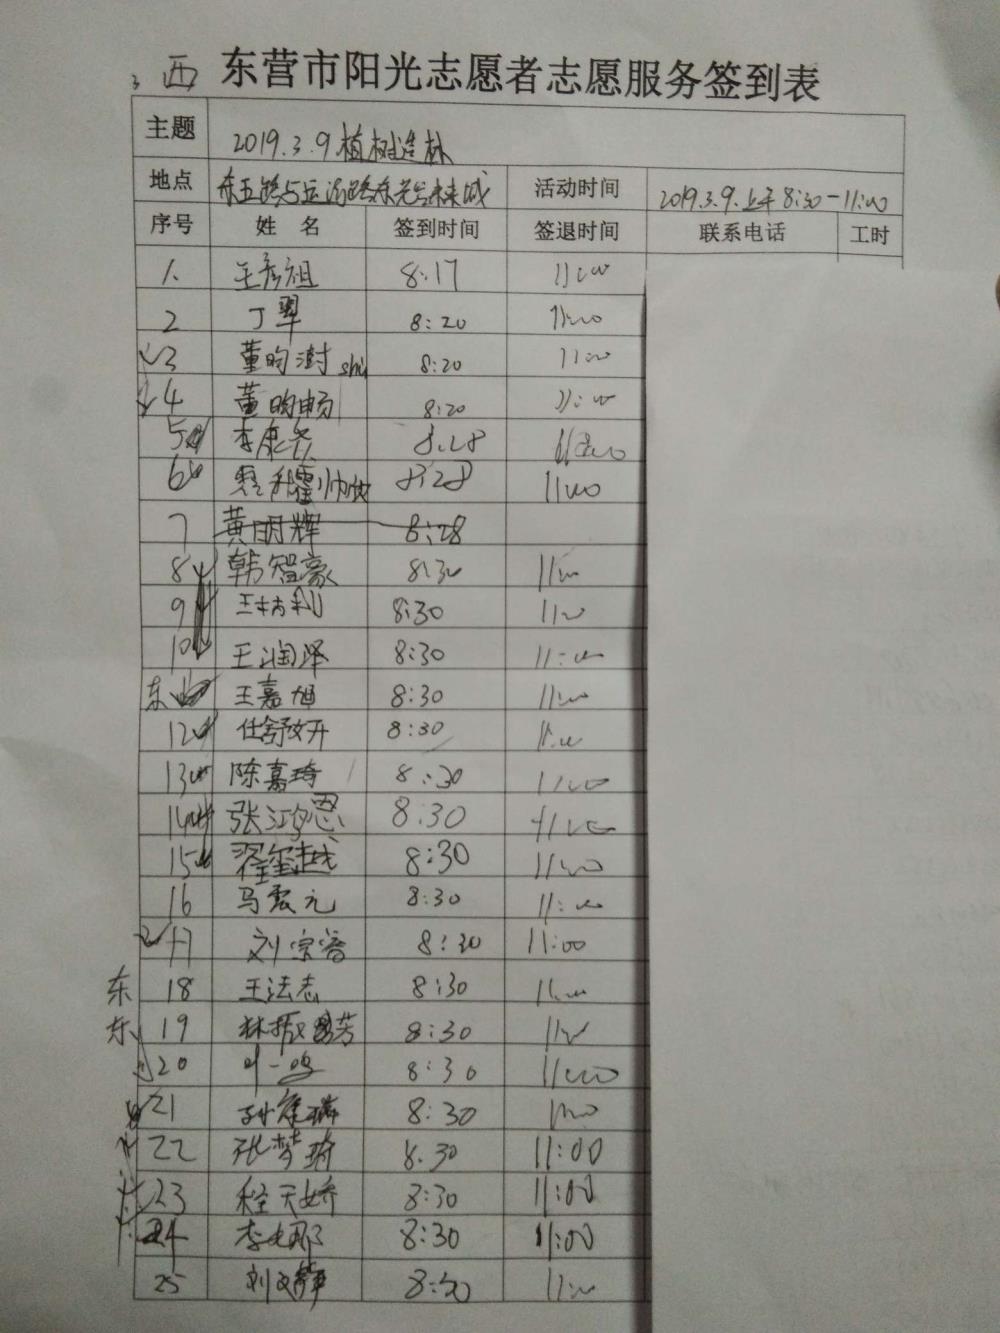 西 东营市阳光志愿者志愿服务签到表
主题 2019.3.9植树造林
地点 活动时间 2019.3.9.上午8:30-11:00
序号 姓 名 签到时间 签退时间 联系电话 工时
1. 王彦祖 8:17 11:00
2 丁翠 8:20 11:00
3 董昀澍 shu 8:20 11:00
4 董昀畅 8:20 11:00
5 李康 8:28 11:00
6 8:28 11:00
7 黄明辉 8:28
8 韩智豪 8:30 11:00
9 8:30 11:00
10 王润泽 8:30 11:00
东 王嘉旭 8:30 11:00
12 任舒妍 8:30 11:00
13 陈嘉琦 8:30 11:00
14 张鸿恩 8:30 11:00
15 翟玺越 8:30 11:00
16 马震元 8:30 11:00
17 刘宗睿 8:30 11:00
东 18 王法志 8:30 11:00
东 19 林振芳 8:30 11:00
20 叶一鸣 8:30 11:00
21 8:30 11:00
22 张梦琦 8:30 11:00
23 程天娇 8:30 11:00
24 李 8:30 11:00
25 刘文静 8:30 11:00